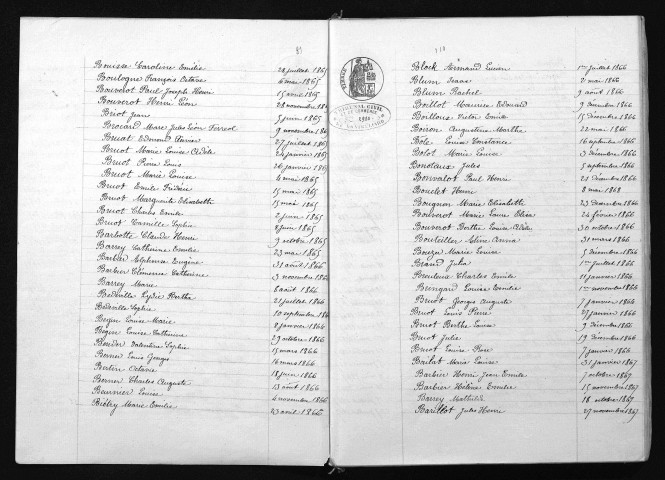 83
Bouisse Caroline Emélie 28 juillet 1865
Boulogne François Octave 6 mai 1865
Bouverot Paul Joseph Henri 15 avril 1865
Bouverot Henri Léon 28 novembre
Briot Jean 5 juin 1865
Marie Jules Léon 9 novembre
Bruat Edmond 27 juillet 1865
Bruot Marie Louise Adèle 24 janvier 1865
Bruot Pierre Louis 26 janvier 1865
Bruot Marie Louise 4 mai 1865
Bruot Emile Frédéric 15 mai 1865
Bruot Marguerite Elisabeth 15 mai 1865
Bruot Charles Emile 2 juin 1865
Bruot Camille Sophie 8 juin 1865
Barbotte Claude Henri 9 octobre 1865
Barrey Catherine Emélie 23 mai 1865
Barbad Alphonse Eugène 31 août 1866
Barbier Clémence Catherine 3 novembre 1866
Barrey Marie 8 août 1866
Bédeville Lydie Bertha 21 juillet 1866
Bédeville Sophie 10 septembre
Beguin Louise Marie 8 janvier 1866
Beguin Louise Catherine 29 octobre 1866
Valentine Sophie 15 mars 1866
Bonnier Louis Georges 16 mars 1866
Octavie 18 juin 1866
Bonner Charles Auguste 13 août 1866
Beurnier Louise 4 novembre 1866
Biétry Marie Emélie 23 avril 1866
Block Armand Lucien 1er juillet 1866
Blum Isaac 2 mai 1866
Blum Rachel 9 août 1866
Boillot Maurice Edouard 9 décembre 1866
Boilloux Victor Emile 15 décembre 1866
Boiron Augustine Martha 22 mai 1866
Bôle Louise Constance 16 septembre 1866
Bolot Marie Louise 3 décembre 1866
Bonoteaux Jules 5 septembre 1866
Bonvalot Paul Henri 21 décembre 1866
Bouclet Henri 8 mai 1868
Bougnon Marie Elisabeth 23 décembre 1866
Bouverot Marie Laure Elisa 24 février 1866
Bouverot Berthe Louise Adèle 30 octobre 1866
Bouteiller Aline Anna 31 mars 1866
Bouzer Marie Louise 5 décembre 1866
Brand Julia 1er juillet 1866
Charles Emile 11 janvier 1866
Louise Emélie 1er novembre 1866
Bruot Georges Auguste 7 janvier 1866
Bruot Louis Pierre 27 janvier 1866
Bruot Berthe Louise 9 décembre 1866
Bruot Julie 19 décembre 1866
Bruot Louise Rose 7 janvier 1866
Barlat Marie Louise 31 janvier 1867
Barbier Henri Jean Emile 7 octobre 1867
Barbier Hélène Emélie 15 novembre 1867
Barrey Mathilde 18 octobre 1867
Barillot Jules Henri 27 novembre 1867